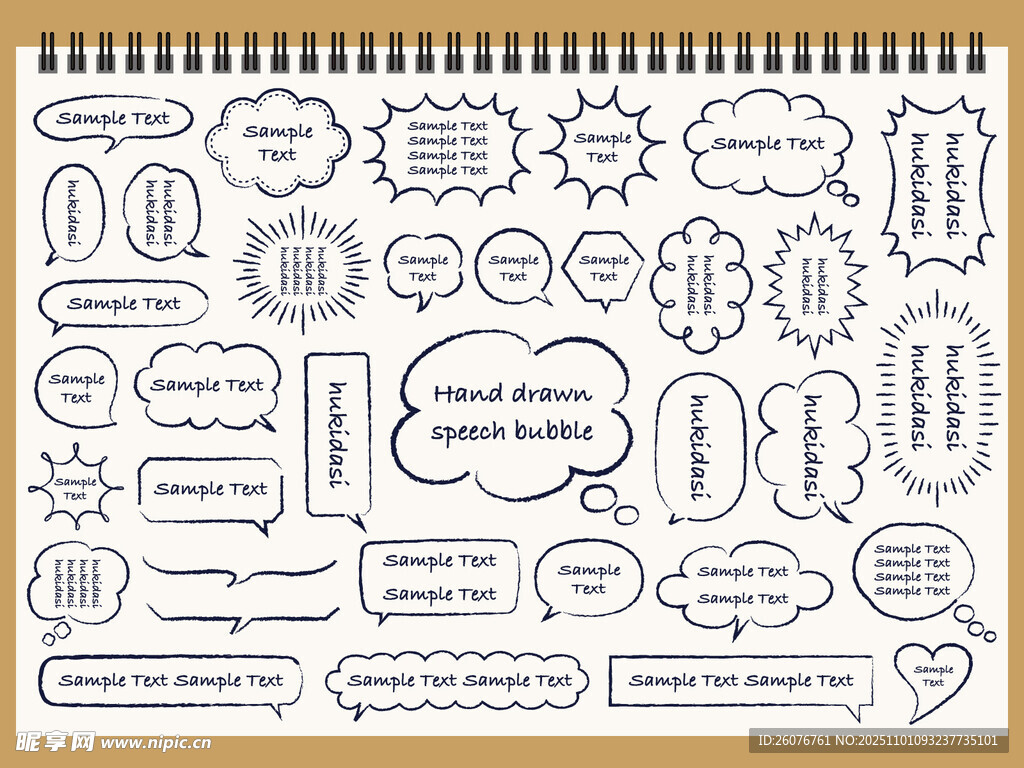 Sample Text
Sample
Text
Sample Text
Sample Text
Sample Text
Sample Text
Sample
Text
Sample Text
hukidasi
hukidasi
hukidasi
hukidasi
hukidasi
hukidasi
hukidasi
hukidasi
hukidasi
Sample
Text
Sample
Text
Sample
Text
hukidasi
hukidasi
hukidasi
hukidasi
Sample Text
Sample
Text
Sample Text
hukidasi
Hand drawn
speech bubble
hukidasi
hukidasi
hukidasi
hukidasi
Sample
Text
Sample Text
hukidasi
hukidasi
hukidasi
hukidasi
Sample Text
Sample Text
Sample
Text
Sample Text
Sample Text
Sample Text
Sample Text
Sample Text
Sample Text
Sample Text Sample Text
Sample Text Sample Text
Sample Text Sample Text
Sample
Text
昵享网 www.nipic.cn
ID:26076761 NO:20251101093237735101